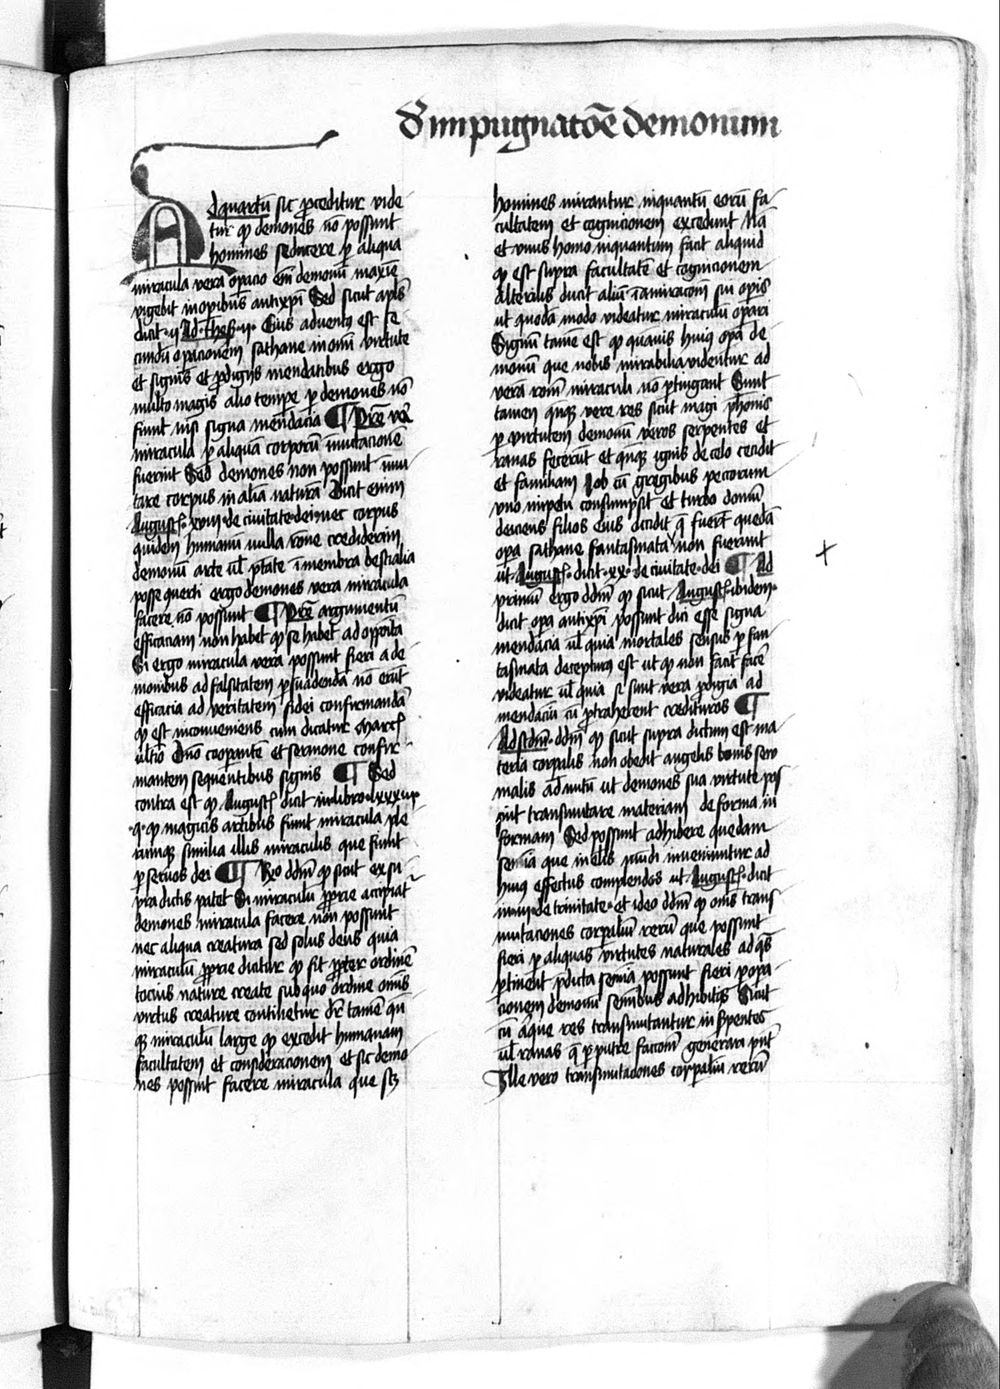 d' impugnatōe demonum
Ad quartū sic proceditur vide
tur qp demones nō possunt
homines seducere per aliqua
miracula vera opacio em̄ demonū maxīe
vigebit in opibus antixpi Sed sicut apls
dicit ·ii· Ad Thes· ii· Eius adventus est se
cundū opacionem sathane in omni virtute
et signis et prodigiis mendacibus ergo
multo magis alio tempe per demones nō
fiunt nisi signa mendacia ¶ Pretea vera
miracula per aliquā corporū mutacionē
fuerint Sed demones non possunt mu
tare corpus in aliā naturā Dicit enim
August· xviii· de civitate dei nec corpus
quidem humanū nulla rōne crediderim
demonū arte vl' ptate in membra bestialia
posse querti ergo demones vera miracula
facere nō possunt ¶ Pretea argumentū
efficaciam non habet qp se habet ad opposita
Si ergo miracula vera possunt fieri a de
monibus ad falsitatem psuadendā nō erūt
efficacia ad veritatem fidei confirmandā
qp est inconveniens cum dicatur march
ultīo Dnō coopante et sermone confir
mantem sequentibus signis ¶ Sed
contra est qp August dicit in libro lxxxiii
·q· qp magicis artibus fiunt miracula ple
rumque similia illis miraculis que fiunt
per servos dei ¶ Rō ddm̄ qp sicut ex su
pra dictis patet Si miraculū pprie accipiat
demones miracula facere non possunt
nec aliqua creatura sed solus deus quia
miraculū pprie dicitur qp fit preter ordinē
tocius nature create sub quo ordine omīs
virtus creature continetur dr̄ tamē qn̄
qp miraculū large qp excedit humanam
facultatem et consideracionem et sic demo
nes possunt facere miracula que sz
homines mirantur inquantū eorū fa
cultatem et cognicionem excedunt Nā
et unus homo inquantum facit aliquid
qp est supra facultatē et cognicionem
alterius ducit aliū in amiracōm sui opis
ut quodā modo videatur miraculū opari
Sciendū tamē est qp quamvis huius opa de
monum que nobis mirabilia videntur ad
verā rōnem miraculi nō ptingant Sunt
tamen quīq vere res sicut magi pharaonis
per virtutem demonū veros serpentes et
ranas fecerūt et quīq ignis de celo cecidit
et familiam Job cū gregibus pecorum
uno impetu consumpsit et turbo domū
deiciens filios eius occidit q̄ fuert quedā
opa sathane fantasmata non fuerunt
ut August· dicit xx· de civitate dei ¶ Ad
primū ergo ddm̄ qp sicut August· ibidem
dicit opa antixpi possunt dici esse signa
mendacia vl' quia mortales sensus per fan
tasmata decepturus est ut qp non facit facē
videatur vl' quia si sunt vera pdigia ad
mendaciū tn̄ ptrahent credituros ¶
Ad scdm̄ ddm̄ qp sicut supra dictum est ma
teria corpalis non obedit angelis bonis seu
malis ad nutū ut demones sua virtute pos
sint transmutare materiam de forma in
formam Sed possunt adhibere quedam
semīa que in elis mūdi inveniuntur ad
huius effectus complendos ut August· dicit
in iii· de trinitate· et ideo ddm̄ qp omīs trans
mutaciones corpaliū rerū que possunt
fieri per aliquas virtutes naturales ad qs̄
ptinent pdicta semīa possunt fieri p opa
cionem demonū semībus adhibitis Sicut
cū alique res transmutantur in serpentes
vl' ranas q̄ per putrefaccōm generari pnt
Ille vero transmutaciones corpaliū rerū